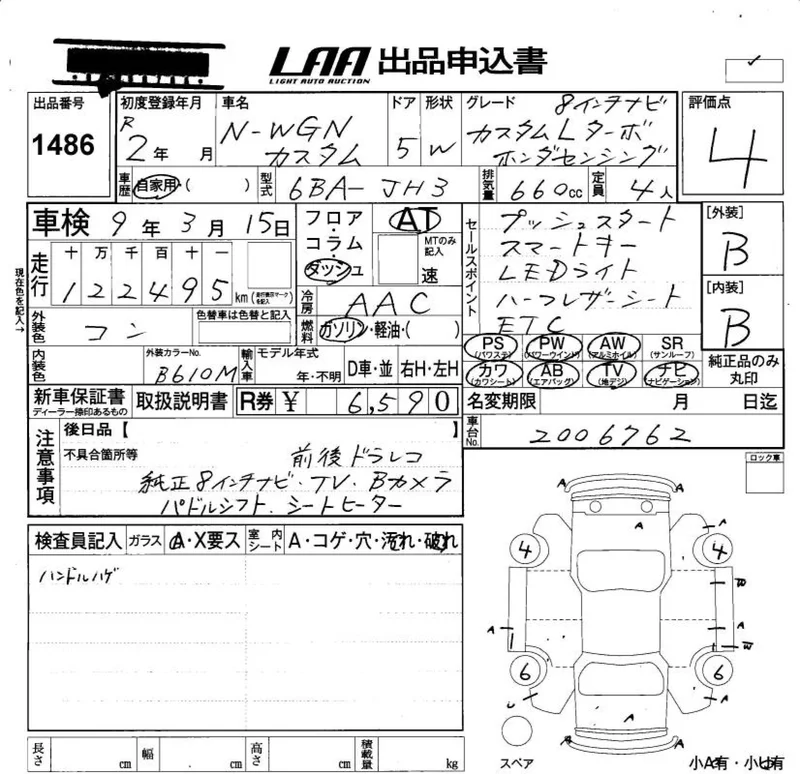 LAA 出品申込書
LIGHT AUTO AUCTION
出品番号 初度登録年月 車名 ドア 形状 グレード 8インチナビ 評価点
1486 R 2年 月 N-WGN カスタム 5 W カスタムLターボ ホンダセンシング 4
車歴 自家用・( ) 型式 6BA-JH3 排気量 660cc 定員 4人
車検 9年3月15日 フロア・コラム・ダッシュ AT MTのみ記入 速
セールスポイント プッシュスタート
スマートキー
LEDライト
ハーフレザーシート
ETC
[外装] B
[内装] B
現在色を記入→
走行 十 万 千 百 十 一
122495 km (走行要メーク)を記入
冷房 AAC
外装色 コン 色替車は色替と記入 燃料 ガソリン・軽油・( )
PS (パワステ) PW (パワーウインド) AW (アルミホイル) SR (サンルーフ)
カワ (カワシート) AB (エアバッグ) TV (地デジ) ナビ (ナビゲーション)
純正品のみ丸印
内装色 外装カラーNo. B610M 輸入車 モデル年式 年・不明 D車・並 右H・左H
新車保証書 ディーラー捺印あるもの 取扱説明書 R券 ¥ 6,590 名変期限 月 日迄
車台No. 2006762
注意事項 後日品【 】
不具合箇所等 前後ドラレコ
純正8インチナビ・TV・Bカメラ
パドルシフト、シートヒーター
ロック車
検査員記入 ガラス A・X要ス 室内シート A・コゲ・穴・汚れ・破れ
ハンドルハゲ
A A
A
A
4 4
W
A A
W
6 6
U A
A
A A
スペア
長さ cm 幅 cm 高さ cm 積載量 kg
小A有・小U有